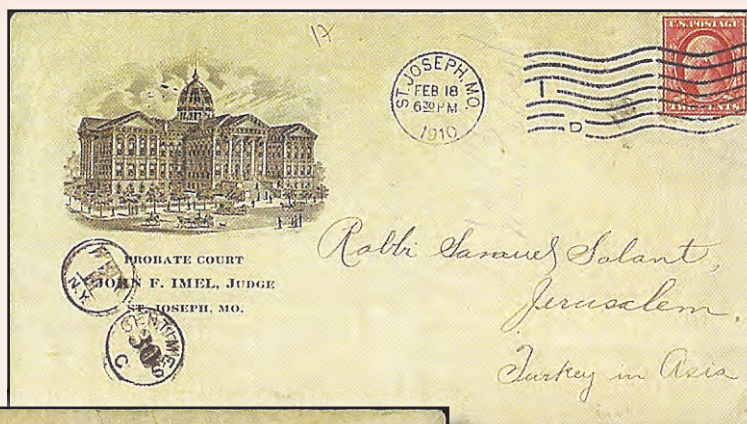 17
ST. JOSEPH, MO.
FEB 18
6 30 PM
1910
U.S. POSTAGE
TWO CENTS
I
D
PROBATE COURT
JOHN F. IMEL, JUDGE
ST. JOSEPH, MO.
N.Y.
CENTIMES
30
Rabbi Samuel Salant,
Jerusalem,
Turkey in Asia